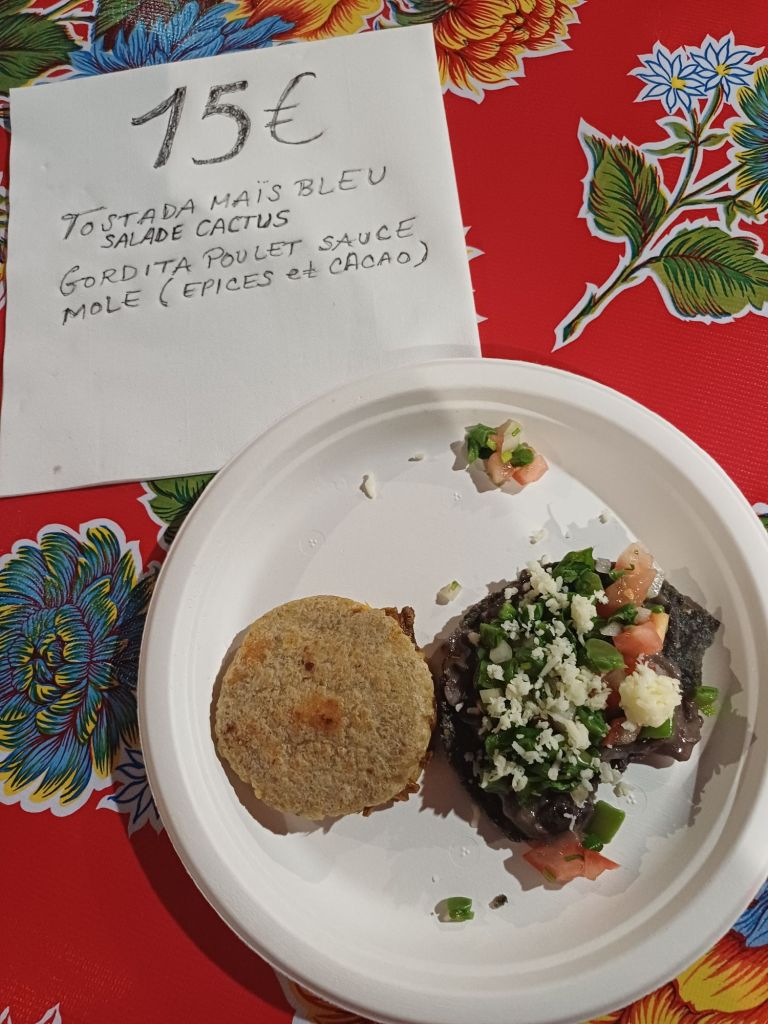 15€
TOSTADA MAÏS BLEU
SALADE CACTUS
GORDITA POULET SAUCE
MOLE (EPICES et CACAO)